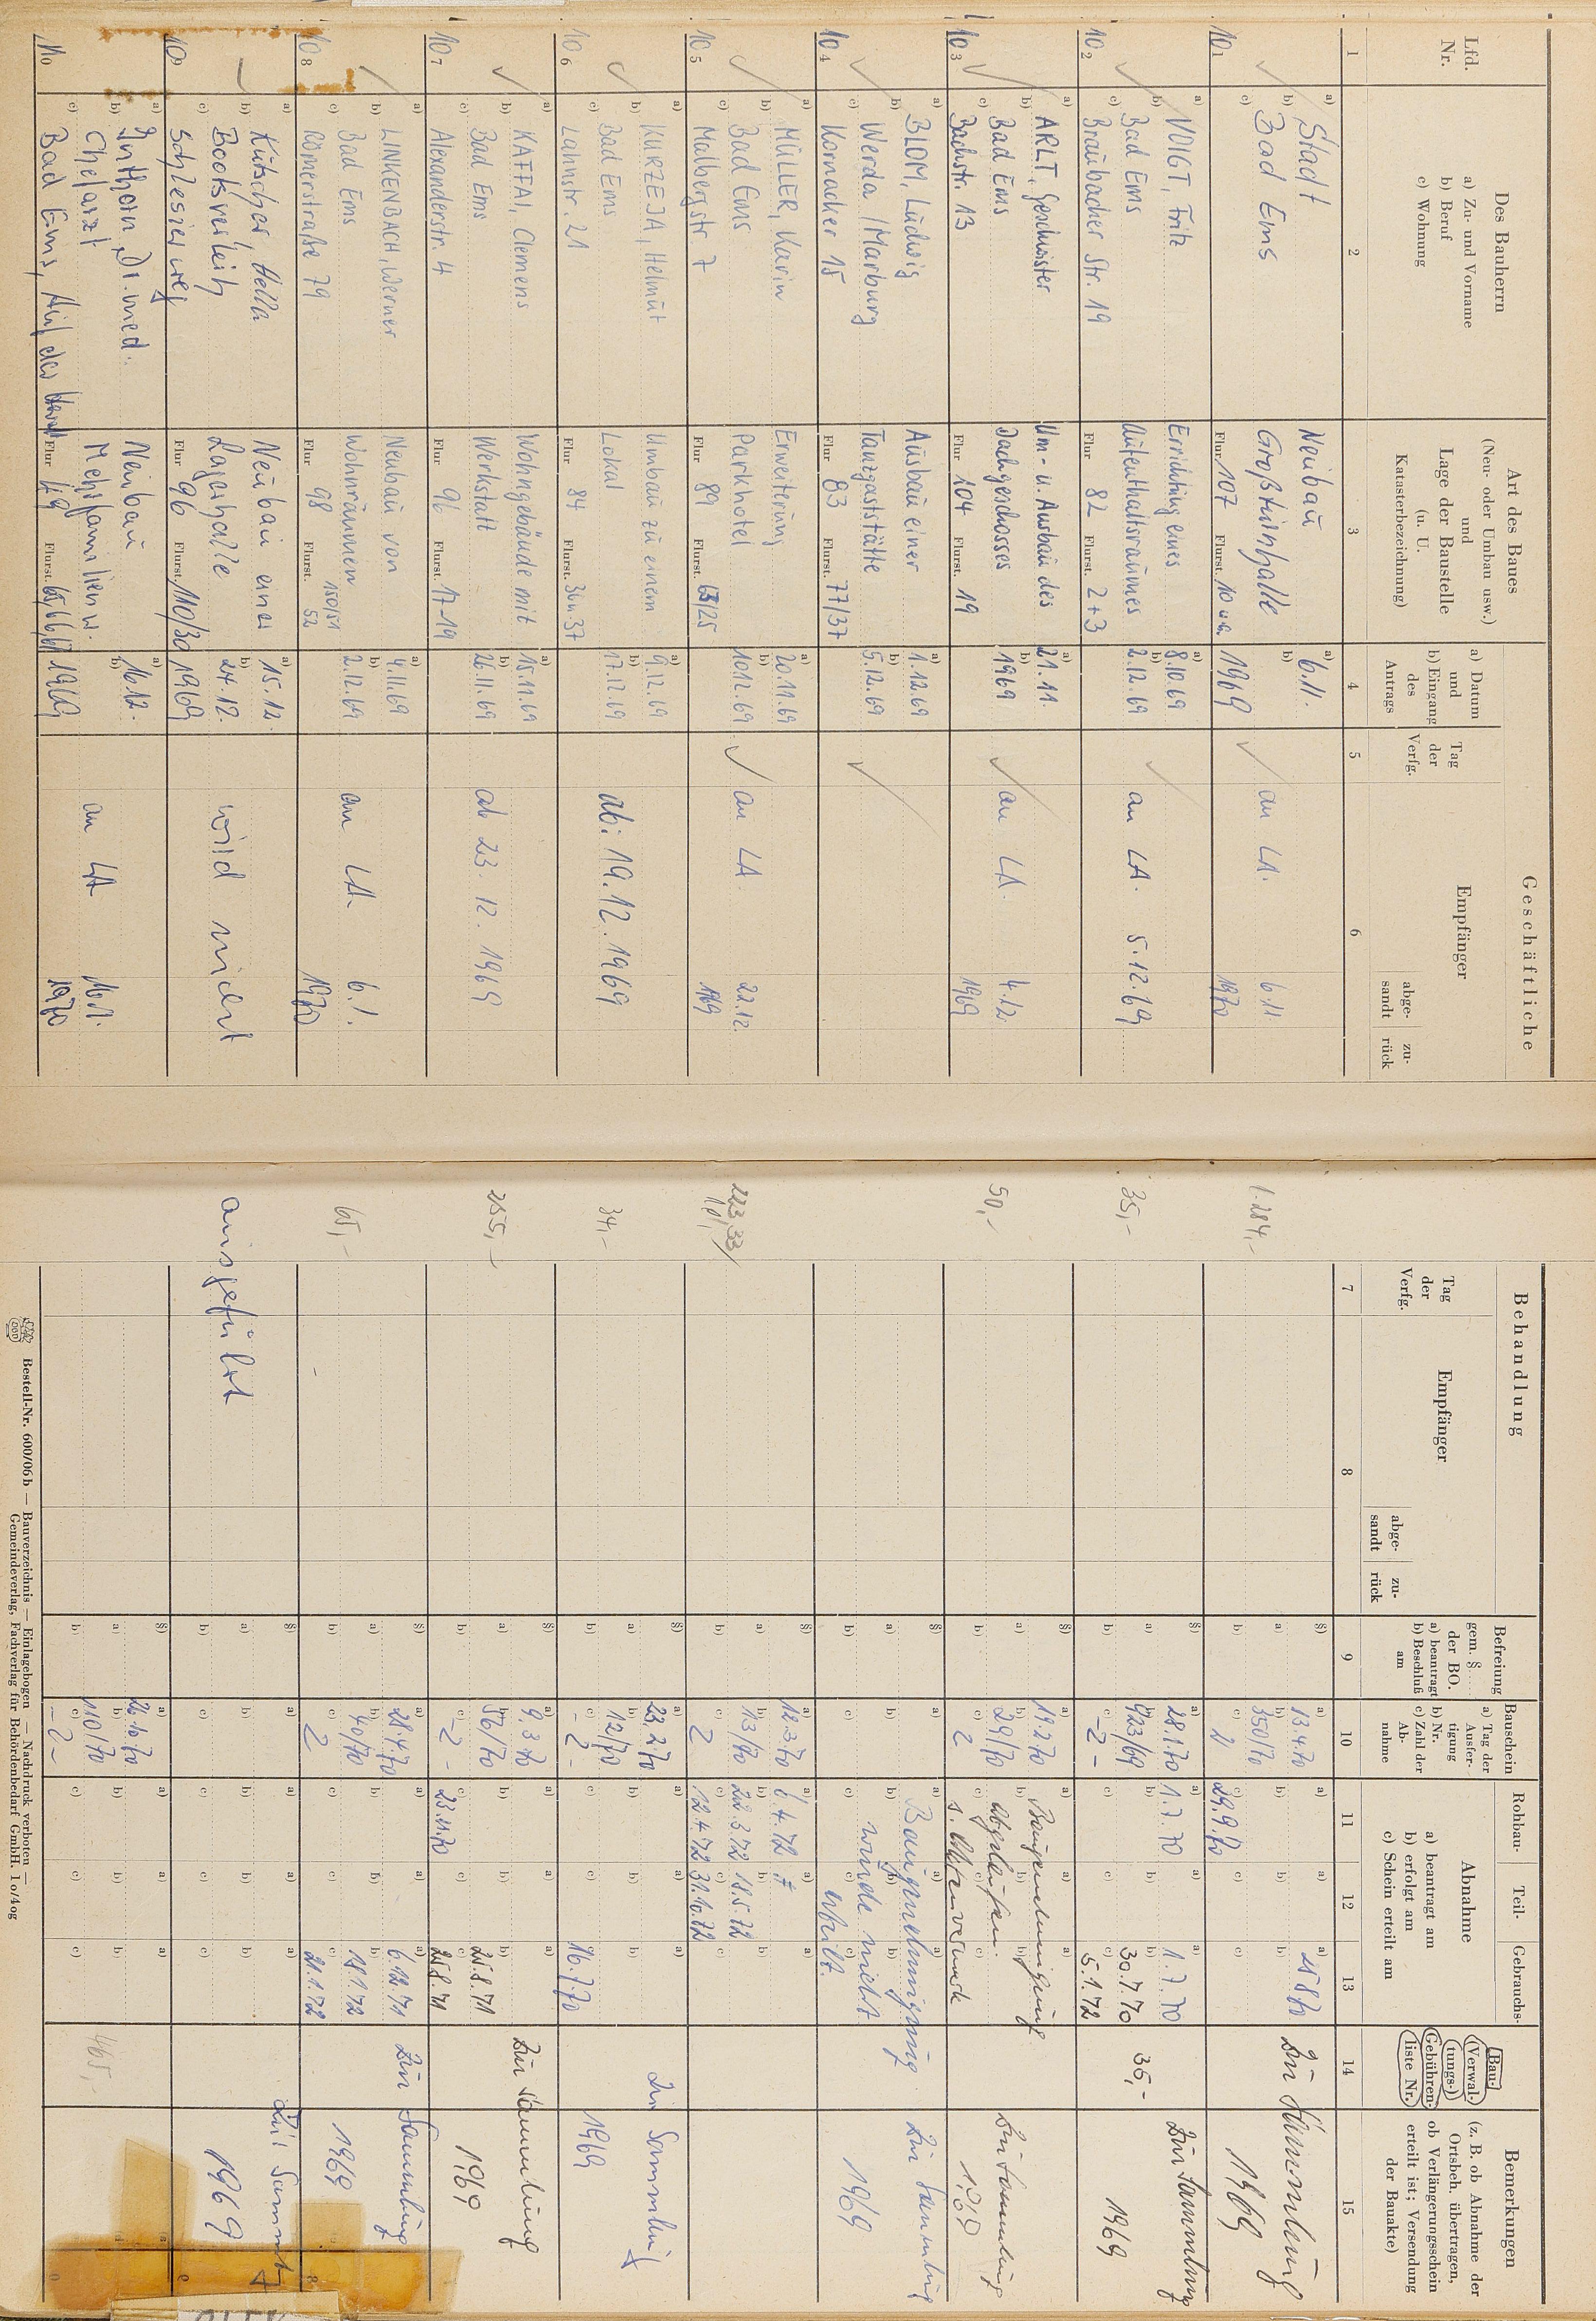 Geschäftliche
Behandlung
Lfd.
Nr.
Des Bauherrn
a) Zu- und Vorname
b) Beruf
c) Wohnung
Art des Baues
(Neu- oder Umbau usw.)
und
Lage der Baustelle
(u. U.
Katasterbezeichnung)
a) Datum
und
b) Eingang
des
Antrags
Tag
der
Verfg.
Empfänger
abge-
sandt
zu-
rück
Tag
der
Verfg.
Empfänger
abge-
sandt
zu-
rück
Befreiung
gem. §
der BO.
a) beantragt
b) Beschluß
am
Bauschein
a) Tag der
Ausfer-
tigung
b) Nr.
c) Zahl der
Ab-
nahme
Rohbau-
Teil-
Gebrauchs-
Abnahme
a) beantragt am
b) erfolgt am
c) Schein erteilt am
Bau-
(Verwal-
tungs-)
Gebühren-
liste Nr.
Bemerkungen
(z. B. ob Abnahme der
Ortsbeh. übertragen,
ob Verlängerungsschein
erteilt ist; Versendung
der Bauakte)
1 2 3 4 5 6 7 8 9 10 11 12 13 14 15
101
a) Stadt
b) Bad Ems
c)
Neubau
Großturnhalle
Flur 107 Flurst. 10 u.a.
a) 6.11.
b) 1969
an LA. 6.11. 1970
1.284,-
a) 13.4.70
b) 350/70
c) 2
c) 29.9.70
a) 25.8.70
Zur Sammlung
1969
102
a) VOIGT, Fritz
b) Bad Ems
c) Braubacher Str. 19
Errichtung eines
Aufenthaltsraumes
Flur 82 Flurst. 2+3
a) 8.10.69
b) 2.12.69
an LA. 5.12.69
35,-
a) 28.1.70
b) 923/69
c) -2-
a) 1.7.70
a) 1.7.70
b) 30.7.70
c) 5.1.72
35,-
Zur Sammlung
1969
103
a) ARLT, Geschwister
b) Bad Ems
c) Bachstr. 13
Um- u. Ausbau des
Dachgeschosses
Flur 104 Flurst. 19
a) 21.11.
b) 1969
an LA. 4.12. 1969
50,-
a) 18.2.70
b) 29/70
c) 2
Baugenehmigung
abgelaufen.
s. Aktenvermerk
Zur Sammlung
1969
104
a) BLOM, Ludwig
b) Werda / Marburg
c) Kornacker 15
Ausbau einer
Tanzgaststätte
Flur 83 Flurst. 77/37
a) 1.12.69
b) 5.12.69
Baugenehmigung
wurde nicht
erteilt.
Zur Sammlung
1969
105
a) MÜLLER, Karin
b) Bad Ems
c) Malbergstr. 7
Erweiterung
Parkhotel
Flur 89 Flurst.
a) 20.11.69
b) 10.12.69
an LA. 22.12. 1969
a) 12.3.70
b) 13/70
c) 2
a) 6.4.72
b) 22.3.72 18.5.72
c) 12.4.72 31.10.72
106
a) KURZEJA, Helmut
b) Bad Ems
c) Lahnstr. 21
Umbau zu einem
Lokal
Flur 84 Flurst. 36 u 37
a) 9.12.69
b) 17.12.69
ab: 19.12.1969
34,-
a) 23.2.70
b) 12/70
c) -2-
c) 16.7.70
Zur Sammlung
1969
107
a) KAFFAI, Clemens
b) Bad Ems
c) Alexanderstr. 4
Wohngebäude mit
Werkstatt
Flur 96 Flurst. 17-19
a) 15.11.69
b) 26.11.69
ab 23.12.1969
255,-
a) 9.3.70
b) 56/70
c) -2-
c) 23.11.70
b) 25.8.71
c) 25.8.71
Zur Sammlung
1969
108
a) LINKENBACH, Werner
b) Bad Ems
c) Römerstraße 79
Neubau von
Wohnräumen
Flur 98 Flurst. 150/51
52
a) 4.11.69
b) 2.12.69
an LA. 6.1. 1970
65,-
a) 28.4.70
b) 40/70
c) 2
a) 6.12.71
b) 18.1.72
c) 21.1.72
Zur Sammlung
1969
109
a) Kutscher, Hella
b) Bootsverleih
c) Schlesierweg
Neubau einer
Lagerhalle
Flur 96 Flurst. 110/30
a) 15.12.
b) 24.12.
1969
wird nicht ausgeführt
Zur Samml.
1969
110
a) Inthorn, Dr. med.
b) Chefarzt
c) Bad Ems, Auf der
Neubau
Mehrfamilienw.
Flur 49 Flurst.
a) 16.12.
b) 1969
an LA 16.1. 1970
a) 26.10.70
b) 110/70
c) -2-
465,-
Bestell-Nr. 600/06b — Bauverzeichnis — Einlagebogen — Nachdruck verboten —
Gemeindeverlag, Fachverlag für Behördenbedarf GmbH.